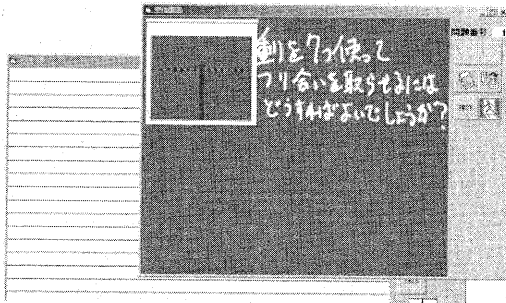 問題番号
重りを7つ使って
フリ合いを取らせるには
どうすればよいでしょうか?